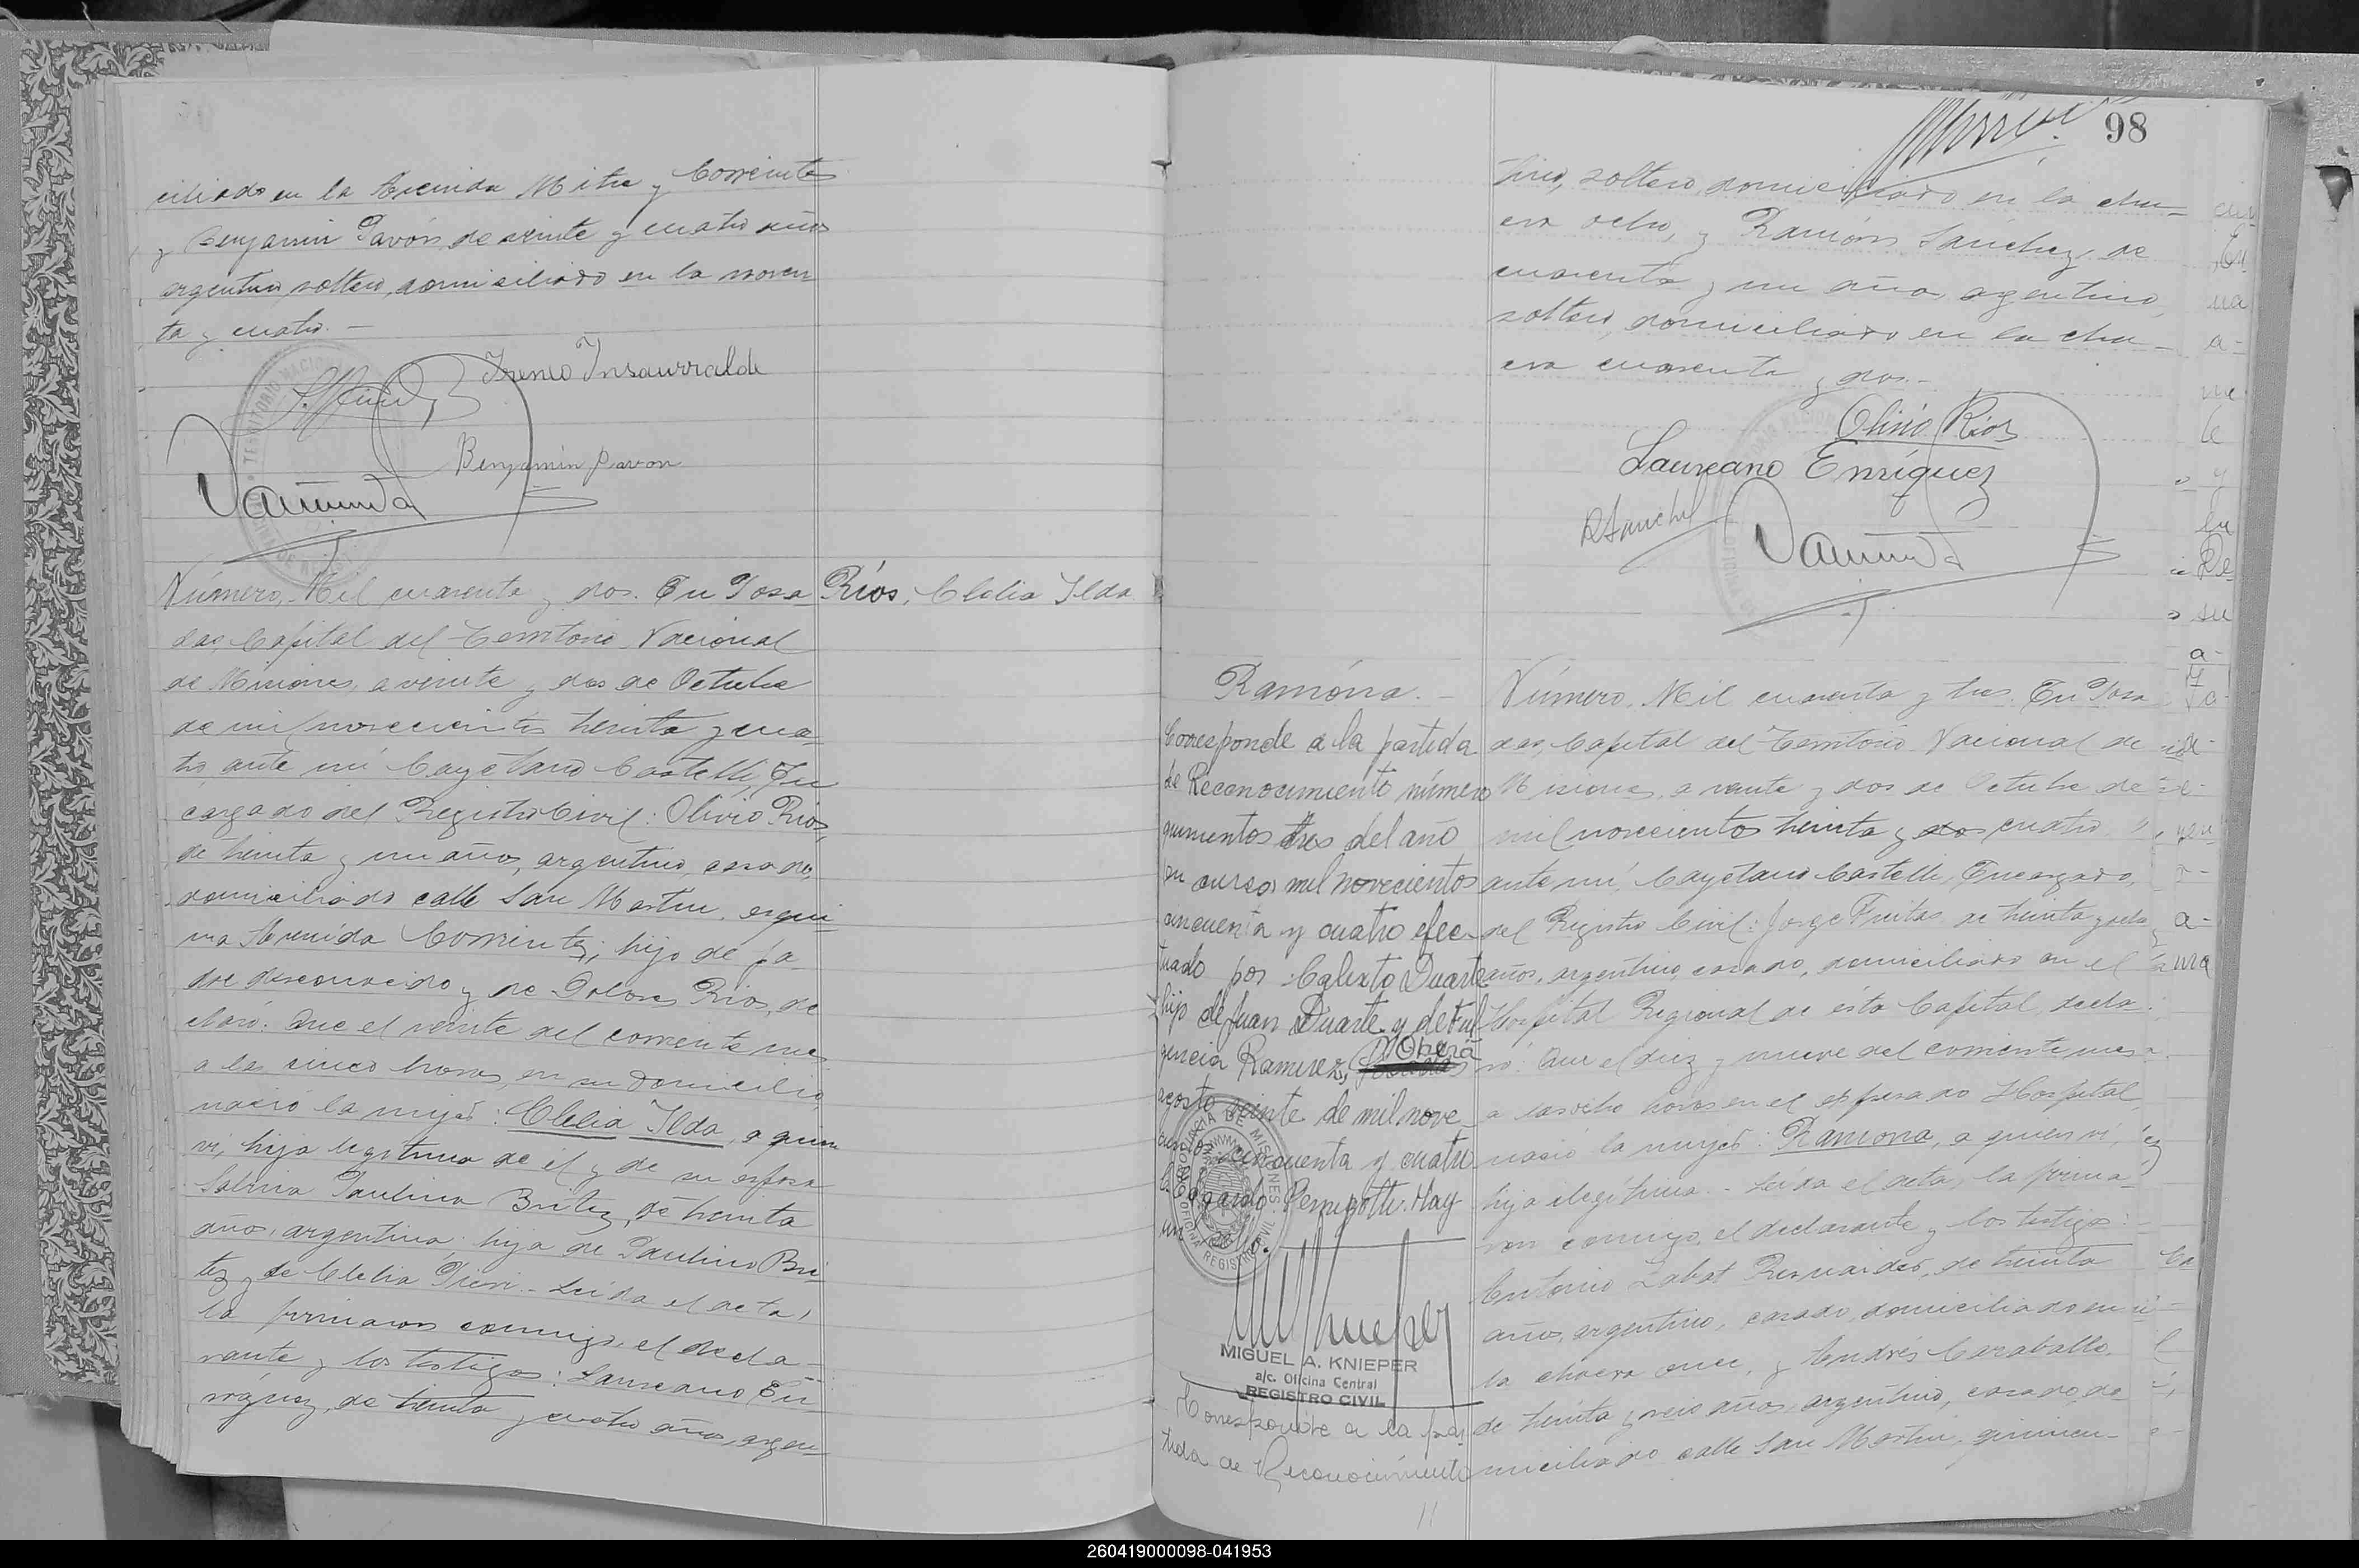 ciliado en la Avenida Mitre y Corrientes
y Benjamin Pavón, de veinte y cuatro años
argentino, soltero, domiciliado en la noven
ta y cuatro. —
Ireneo Insaurralde
Benjamin Pavon
Número, Mil cuarenta y dos. En Posa
Ríos, Clelia Ilda
das, Capital del Territorio Nacional
de Misiones, a veinte y dos de Octubre
de mil novecientos treinta y cua-
tro, ante mí Cayetano Castelli, En
cargado del Registro Civil: Olivio Rios,
de treinta y un años, argentino, casado,
domiciliado calle San Martin, esqui
na Avenida Corrientes; hijo de pa-
dre desconocido y de Dolores Rios, de
claró: Que el veinte del corriente mes
a las cinco horas, en su domicilio,
nació la mujer: Clelia Ilda, a quien
vi, hija legitima de él y de su esposa
Sabina Paulina Britez, de treinta
años, argentina, hija de Paulino Bri
tez y de Clelia - Leida el acta,
la firmaron conmigo, el decla-
rante y los testigos: Laureano En-
ríquez, de treinta y cuatro años, argen-
98
tino, soltero, domiciliado en la cha-
cra ocho, y Ramón Sanchez, de
cuarenta y un años, argentino,
soltero, domiciliado en la cha-
cra cuarenta y dos. -
Olivio Rios
Laureano Enríquez
RSanchez
Ramóna. -
Corresponde a la partida
de Reconocimiento número
quinientos tres del año
en curso mil novecientos
cincuenta y cuatro efec-
tuado por Calixto Duarte
hijo de Juan Duarte y de Ful
gencia Ramirez, Oberá
agosto veinte de mil nove
cientos cincuenta y cuatro
Encargado Pemigotti. Hay
un sello.
PROVINCIA DE MISIONES
OFICINA REGISTRO CIVIL
MIGUEL A. KNIEPER
a/c. Oficina Central
REGISTRO CIVIL
Corresponde a la par
tida de Reconocimiento
Número, Mil cuarenta y tres. En Posa
das, Capital del Territorio Nacional de
Misiones, a veinte y dos de Octubre de
mil novecientos treinta y dos cuatro,
ante mí, Cayetano Castelli, Encargado,
del Registro Civil: Jorge Freitas, de treinta y
años, argentino, casado, domiciliado en el
Hospital Regional de ésta Capital, decla-
ró: Que el diez y nueve del corriente mes
a las ocho horas en el expresado Hospital,
nació la mujer: Ramona, a quien vi,
hija ilegítima. - Leida el acta, la firma-
ron conmigo, el declarante y los testigos:
Antonio Labat Bernardes, de treinta
años, argentino, casado, domiciliado en
la chacra once, y Andrés Caraballo,
de treinta y seis años, argentino, casado, do-
miciliado calle San Martin, quinien-
260419000098-041953